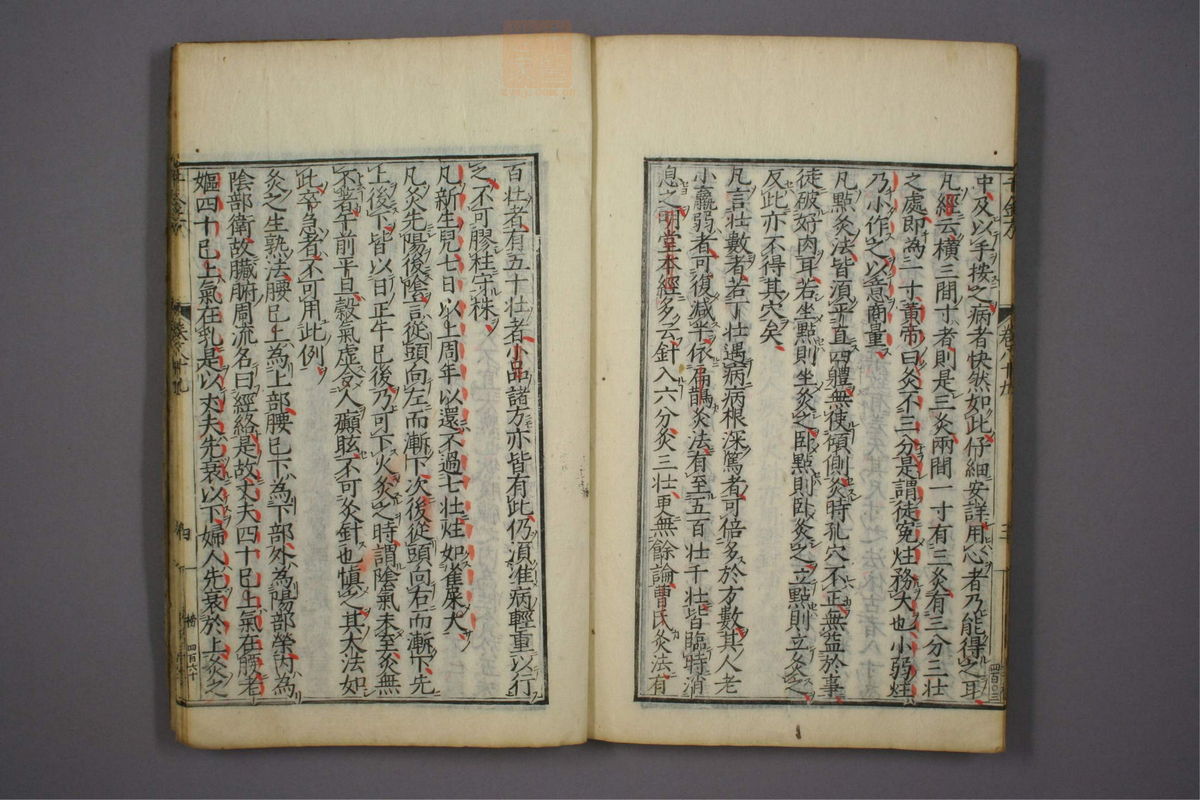 中又以手按之病者快然如此仔細安詳用心者乃能得之耳
凡經云橫三間寸者則是三灸兩間一寸有三灸有三分三壯
之處即為一寸黃帝曰灸不三分是謂徒冤炷務大也小弱炷
乃小作之以意商量
凡點灸法皆須平直四體無使傾側灸時孔穴不正無益於事
徒破好肉耳若坐點則坐灸之臥點則臥灸之立點則立灸之
反此亦不得其穴矣
凡言壯數者若丁壯遇病病根深篤者可倍多於方數其人老
小羸弱者可復减半依扁鵲灸法有至五百壯千壯皆臨時消
息之明堂本經多云針入六分灸三壯更無餘論曹氏灸法有
百壯者有五十壯者小品諸方亦皆有此仍須准病輕重以行
之不可膠柱守株
凡新生兒七日以上周年以還不過七壯炷如雀屎大
凡灸先陽後陰言從頭向左而漸下次後從頭向右而漸下先
上後下皆以日正午已後乃可下火灸之時謂陰氣未至灸無
不著午前平旦穀氣虛令人癲眩不可灸針也慎之其大法如
此卒急者不可用此例
灸之生熟法腰已上為上部腰已下為下部外為陽部榮內為
陰部衛故臟腑周流名曰經絡是故丈夫四十已上氣在腰老
嫗四十已上氣在乳是以丈夫先衰以下婦人先衰於上灸之